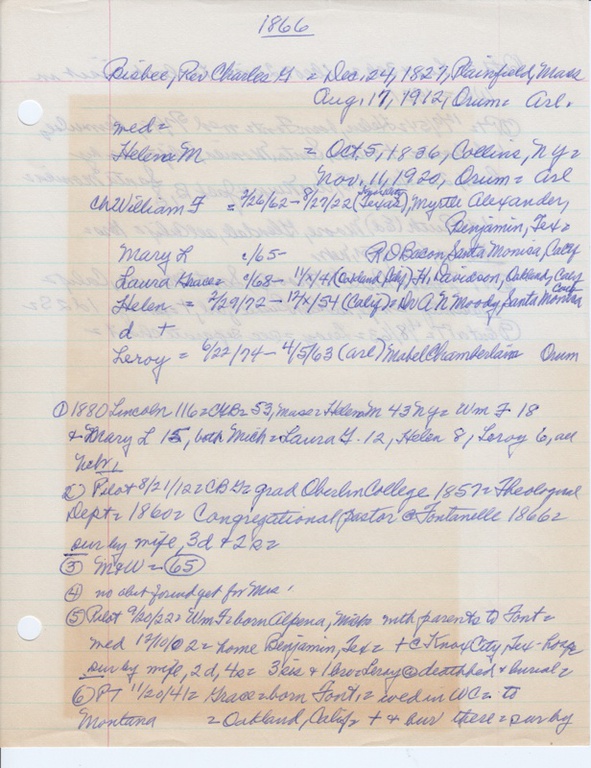 1866
Bisbee, Rev Charles G = Dec. 24, 1827, Plainfield, Mass
Aug. 17, 1912, Orum = Arl.
med =
Helen M = Oct. 5, 1836, Collins, NY =
Nov. 11, 1920, Orum = Arl
Ch William F = 2/26/62 - 8/27/22 (Texas), Myrtle Alexander,
Benjamin, Tex =
Mary L c/65- R D Bacon, Santa Monica, Calif
Laura Grace = c/68- 11/x/4 (Oakland, Calif) H. Davidson, Oakland, Calif
Helen = 2/29/72 - 12/x/54 (Calif) = Dr A N Moody, Santa Monica
Calif
d +
Leroy = 6/22/74 - 4/5/63 (Arl) Mabel Chamberlain Orum
① 1880 Lincoln 116 = CGB = 53, Mass = Helen M 43 NY = Wm F 18
& Mary L 15, both Mich = Laura G. 12, Helen 8, Leroy 6, all
Nebr.
2) Pilot 8/21/12 = CBG = grad Oberlin College 1857 = Theological
Dept = 1860 = Congregational pastor @ Fontanelle 1866 =
sur by wife, 3d & 2s =
③ M&W = 65
④ no obit for Mrs
⑤ Pilot 9/20/22 = Wm F = born Alpena, Mich with parents to Font =
med 12/10/02 = home Benjamin, Tex = + @ Knox City, Tex - hosp
sur by wife, 2d, 4s = 3 sis & 1 bro = Leroy @ deathbed & burial =
⑥ PT 11/20/41 = Grace = born Font. = lived in WC = to
Montana = Oakland, Calif = + & bur there = sur by